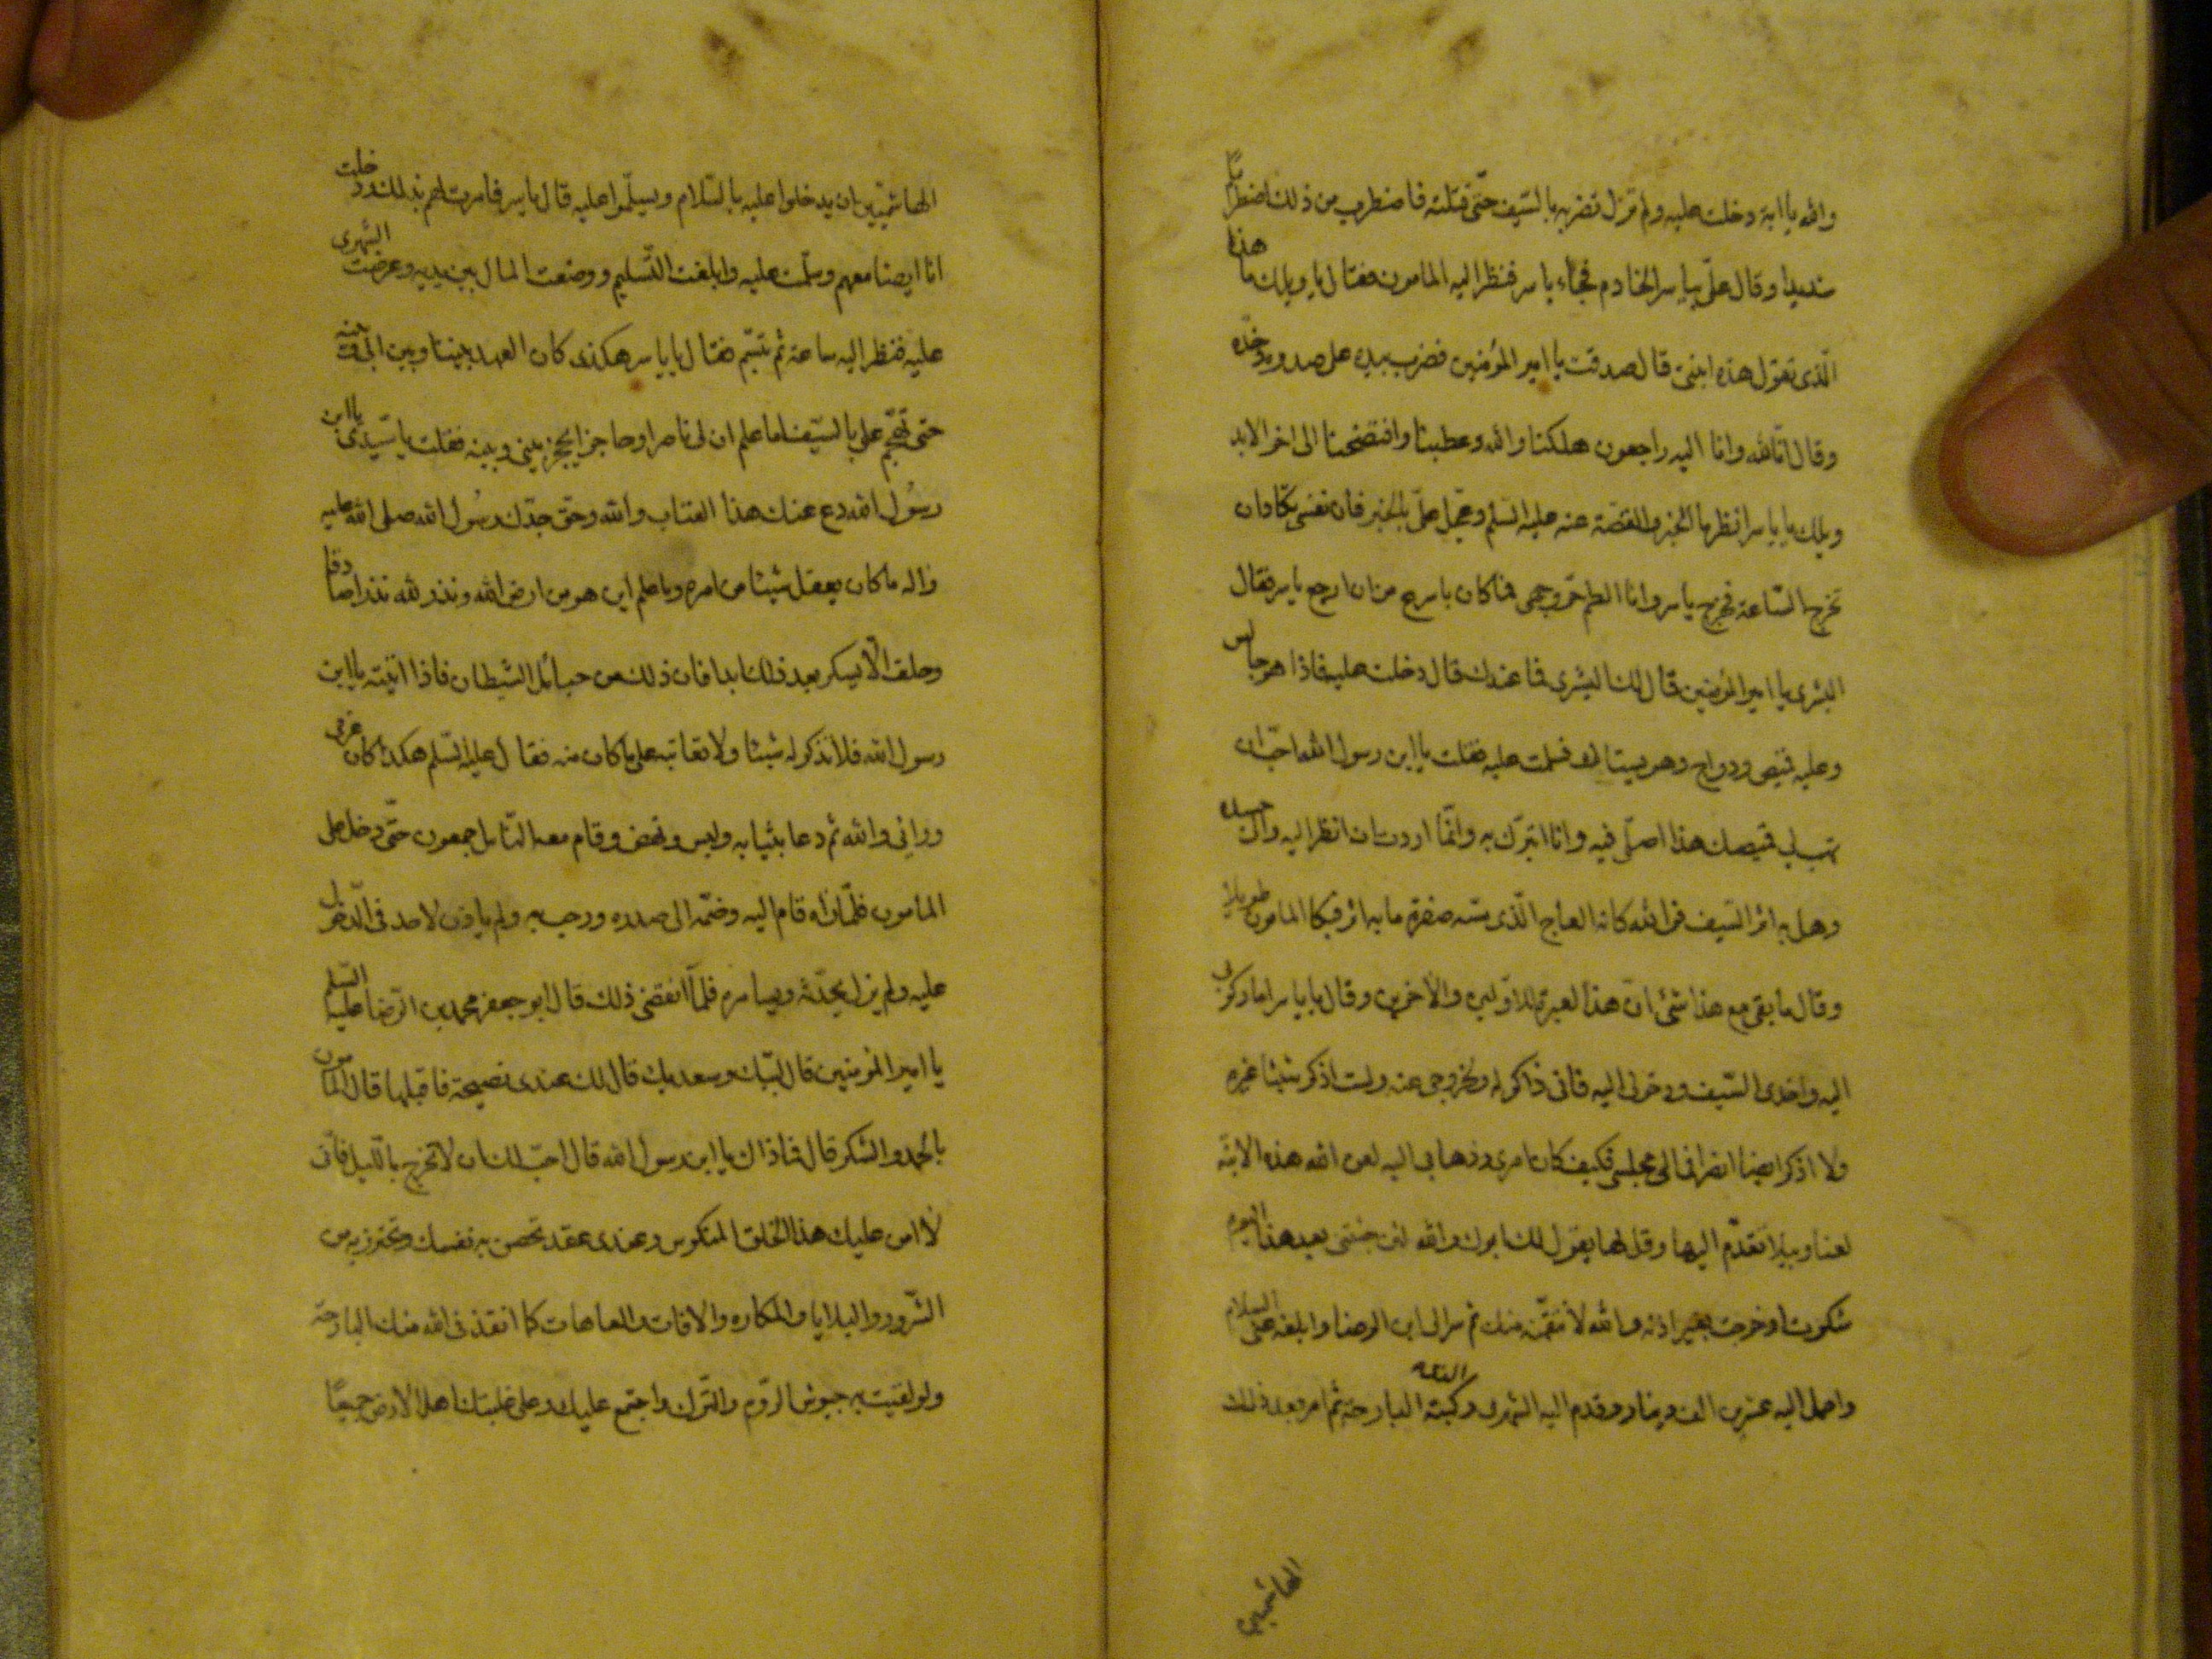 والله يا ابة دخلت عليه ولم تزل تضربه بالسيف حتى قتلته فاضطرب من ذلك اضطرابا
شديدا وقال علي بياسر الخادم فجاء ياسر فنظر اليه المامون فقال يا ويلك ما هذه
الذي تقول هذه ابنتي قال صدقت يا امير المؤمنين فضرب بيده على صدره وخده
وقال انا لله وانا اليه راجعون هلكنا والله وعطبنا وافتضحنا الى اخر الابد
ويلك يا ياسر انظر ما الخبر والقصة عنه عليه السلم وعجل علي بالخبر فان نفسي تكاد ان
تخرج الساعة فخرج ياسر وانا الطم حر وجهي فما كان باسرع من ان ارجع ياسر فقال
البشرى يا امير المؤمنين قال لك البشرى فما عندك قال دخلت عليه فاذا هو جالس
وعليه قميص ودواج وهو يستاك فسلمت عليه فقلت يا ابن رسول الله احب ان
تهب لي قميصك هذا اصلي فيه وانا اتبرك به وانما اردت ان انظر اليه والى جسده
وهل به اثر السيف فوالله كانه العاج الذي مسه صفرة ما به اثر فبكا المامون طويلا
وقال ما بقي مع هذا شئ ان هذا لعبرة للاولين والاخرين وقال يا ياسر اما ركوبي
اليه واخذي السيف ودخولي اليه فاني ذاكر له وخروجي عنه ولست اذكر شيئا غيره
ولا اذكر ايضا انصرافي الى مجلسي فكيف كان امري وذهابي اليه لعن الله هذه الابنة
لعنا وبيلا تقدم اليها وقل لها يقول لك ابوك والله لئن جئتني بعد هذا اليوم
شكوت او خرجت بغير اذنه والله لانتقمن منك ثم سر الى ابن الرضا وابلغه عني السلام
واحمل اليه عشرين الف دينار وقدم اليه الشهري الذي ركبته البارحة ثم امر بعد ذلك
الهاشميين
الهاشميين ان يدخلوا عليه بالسلام ويسلموا عليه قال ياسر فامرت لهم بذلك ودخلت
انا ايضا معهم وسلمت عليه وابلغت التسليم ووضعت المال بين يديه وعرضت الشهري
عليه فنظر اليه ساعة ثم تبسم فقال يا ياسر هكذى كان العهد بيننا وبين ابي وبينه
حتى تهجم علي بالسيف اما علم ان لي ناصرا وحاجزا يحجز بيني وبينه فقلت يا سيدي يا ابن
رسول الله دع عنك هذا العتاب والله وحق جدك رسول الله صلى الله عليه
واله ما كان يعقل شيئا من امره وما علم اين هو من ارض الله ونذر لله نذرا صادقا
وحلف الا يسكر بعد ذلك ابدا فان ذلك من حبائل الشيطان فاذا اتيته يا ابن
رسول الله فلا تذكر له شيئا ولا تعاتبه على ما كان منه فقال عليه السلم هكذا كان عزمي
ورايي والله ثم دعا بثيابه ولبس ونهض وقام معه الناس اجمعون حتى دخل على
المامون فلما راه قام اليه وضمه الى صدره ورحب به ولم ياذن لاحد في الدخول
عليه ولم يزل يحدثه ويسامره فلما انقضى ذلك قال ابو جعفر محمد بن الرضا عليه السلم
يا امير المؤمنين قال لبيك وسعديك قال لك عندي نصيحة فاقبلها قال المامون
بالحمد والشكر قال فما ذاك يا ابن رسول الله قال احب لك ان لا تخرج بالليل فاني
لا امن عليك هذا الخلق المنكوس وعندي عقد تحصن به نفسك وتحترز به من
الشرور والبلايا والمكاره والافات والعاهات كما انقذني الله منك البارحة
ولو لقيت به جيوش الروم والترك واجتمع عليك وعلى غلبتك اهل الارض جميعا